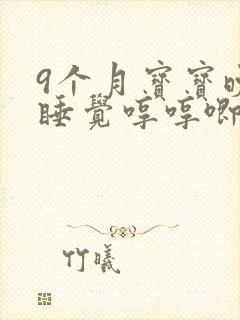 9个月寶寶
睡覺哼哼唧
竹曦